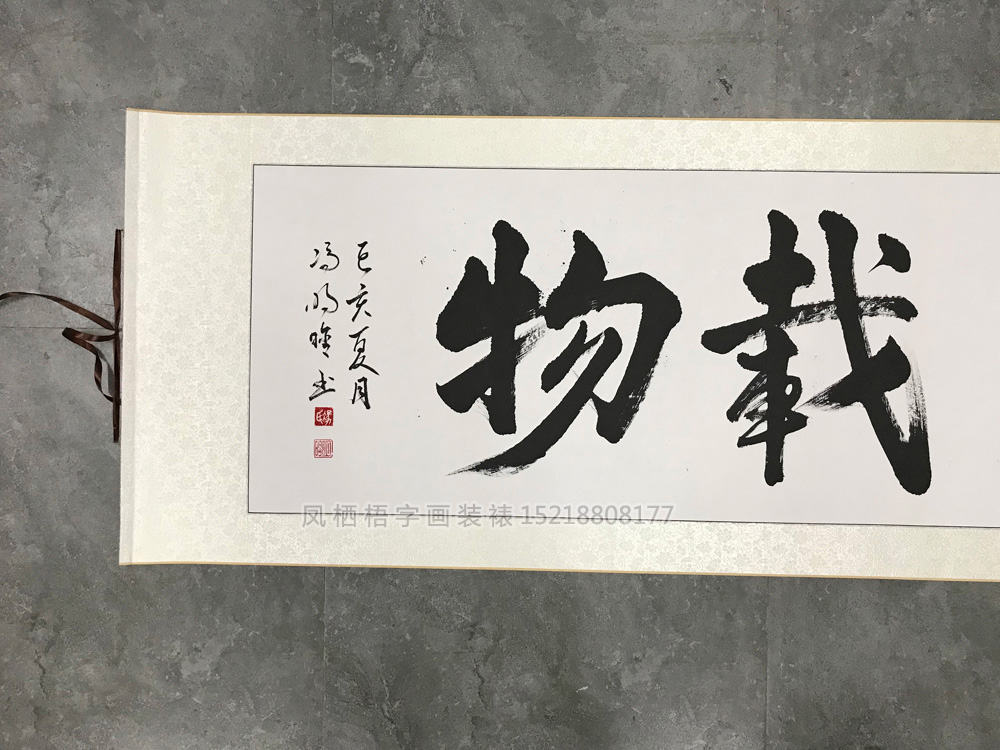 載物
己亥夏月
冯明书
凤栖梧字画装裱 15218808177